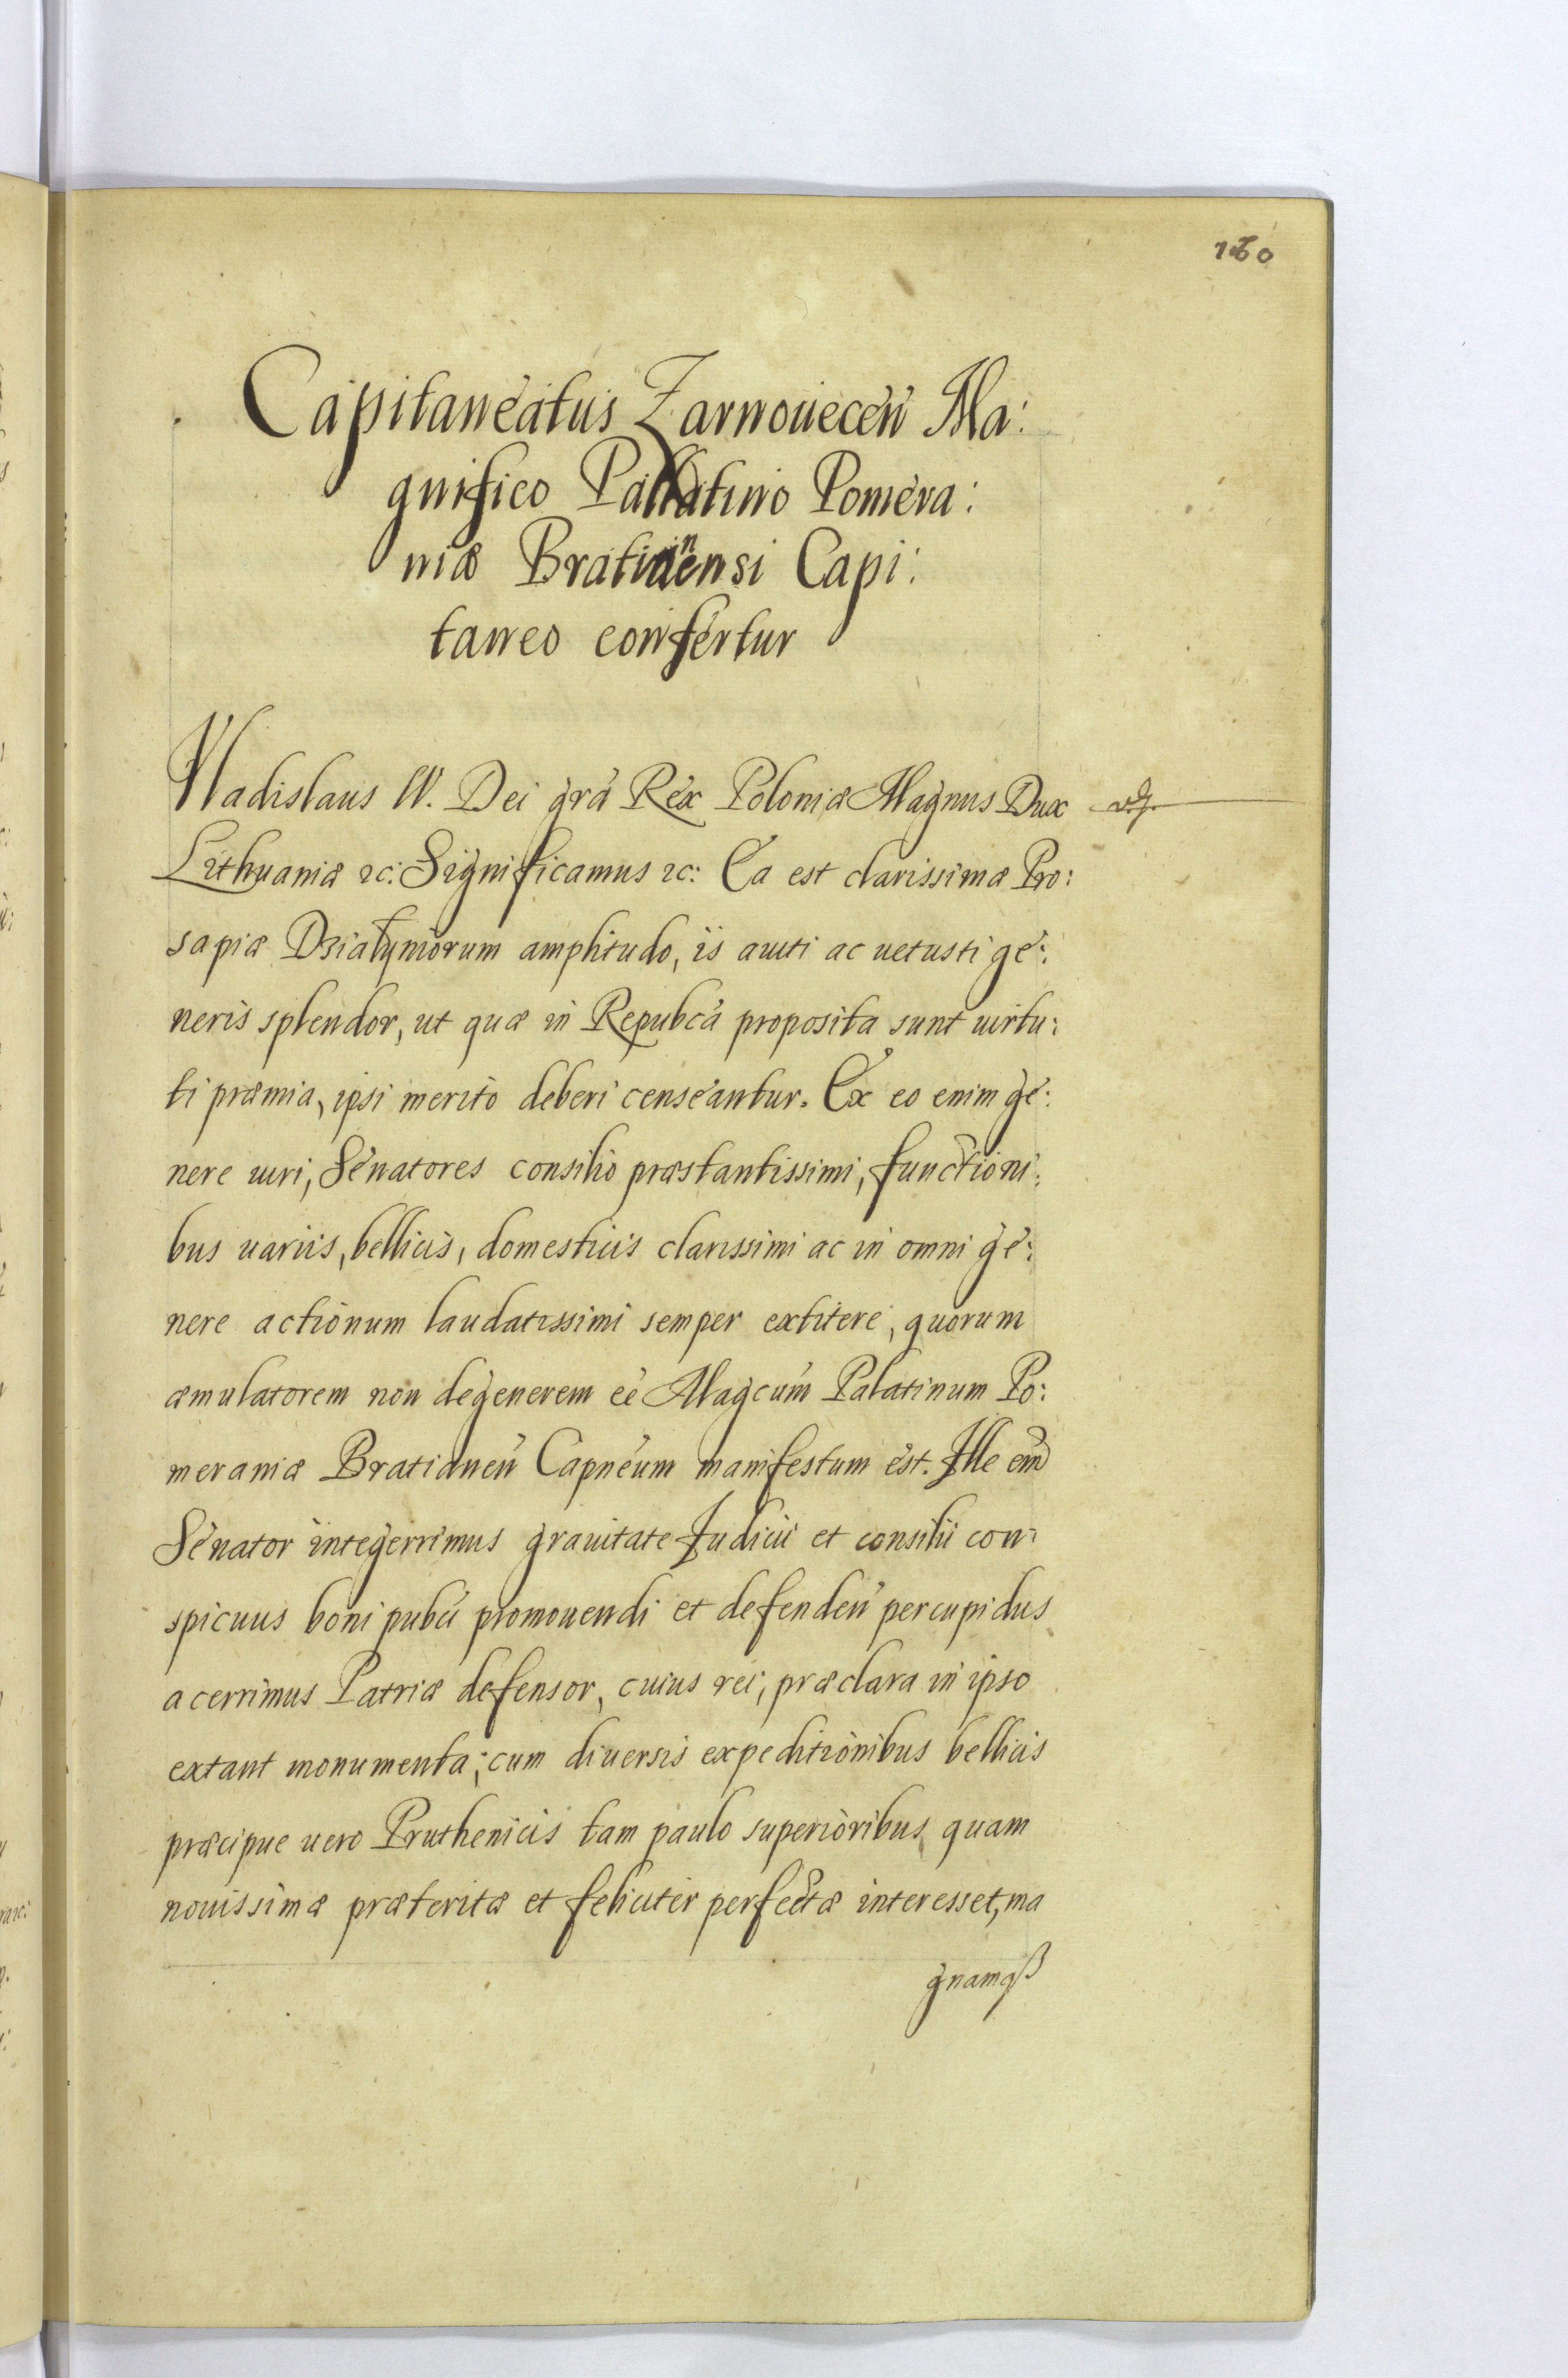 160
Capitaneatus Zarnouecen̄ Ma:
gnifico Pallatino Pomera:
niæ Bratianensi Capi:
taneo confertur
Vladislaus IV. Dei grã Rex Poloniæ Magnus Dux
Lithuaniæ ꝛc: Significamus ꝛc: Ea est clarissimæ Pro:
sapiæ Dzialyniorum amplitudo, is auiti ac uetusti ge:
neris splendor, ut quæ in Repubcã proposita sunt uirtu:
ti præmia, ipsi merito deberi censeantur. Ex eo enim ge:
nere uiri, Senatores consilio præstantissimi, functioni:
bus uariis, bellicis, domesticis clarissimi ac in omni ge:
nere actionum laudatissimi semper extitere, quorum
æmulatorem non degenerem eē Magcum̃ Palatinum Po:
meraniæ Bratianen̄ Capneūm manifestum est. Ille em̃
Senator integerrimus grauitate Iudicii et consilii con:
spicuus boni pubci promouendi et defenden̄ percupidus
acerrimus Patriæ defensor, cuius rei, præclara in ipso
extant monumenta; cum diuersis expeditionibus bellicis
præcipue uero Pruthenicis tam paulo superioribus quam
nouissimæ præteritæ et feliciter perfectæ interesset, ma
gnamqꝫ